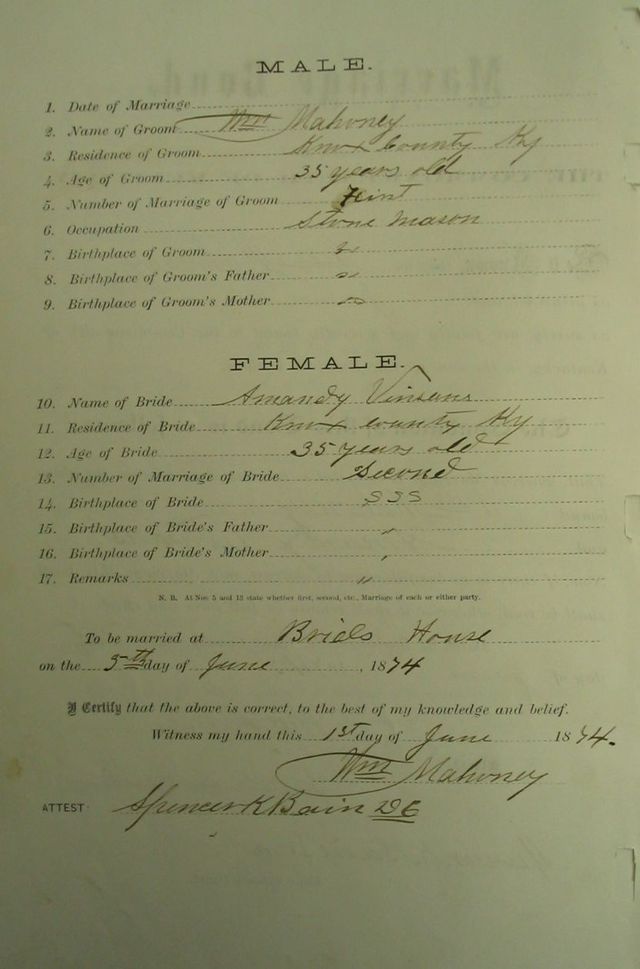 MALE.
1. Date of Marriage
2. Name of Groom Wm Mahoney
3. Residence of Groom Knox County Ky
4. Age of Groom 35 years old
5. Number of Marriage of Groom First
6. Occupation Stone Mason
7. Birthplace of Groom
8. Birthplace of Groom's Father
9. Birthplace of Groom's Mother
FEMALE.
10. Name of Bride Amandy
11. Residence of Bride Knox County Ky
12. Age of Bride 35 years old
13. Number of Marriage of Bride Second
14. Birthplace of Bride
15. Birthplace of Bride's Father "
16. Birthplace of Bride's Mother "
17. Remarks "
N. B. At Nos 5 and 13 state whether first, second, etc., Marriage of each or either party.
To be married at Brids House
on the 5th day of June, 1874
I Certify that the above is correct, to the best of my knowledge and belief.
Witness my hand this 1st day of June 1874.
Wm Mahoney
ATTEST: Spencer K Bain